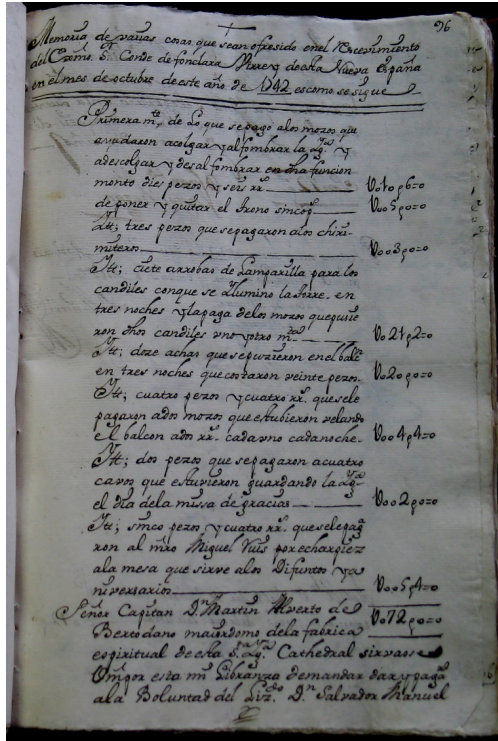 96
Memoria de varias cosas que sean ofresido en el Recevimiento
del Exmo. Sr. Conde de fonclara Virrey de esta Nueva España
en el mes de octubre de este año de 1742 es como se sigue
Primera mte. de Lo que se pago alos mozos que
ayudaron acolgar y alfombrar la Yga. y
adescolgar y desalfombrar en dha funcion
monto dies pezos y seis rr. U010p6=0
de poner y quitar el trono sincop. U005p0=0
Itt; tres pezos que se pagaron alos chiri-
miteros U003p0=0
Itt; ciete arrobas de Lamparilla para los
candiles conque se Yllumino la torre en
tres noches y la paga delos mozos que pusie
ron dhos candiles vno y otro U021p2=0
Itt; doze achas que se puzieron en el baln.
en tres noches que costaron veinte pezos. U020p0=0
Itt; cuatro pezos y cuatro rr. que sele
pagaron ados mozos que estubieron velando
el balcon ados rr. cada vno cada noche. U004p4=0
Itt; dos pezos que se pagaron a cuatro
cavos que estuvieron guardando la Yga.
el dia dela missa de gracias U002p0=0
Itt; sinco pezos y cuatro rr. que sele paga
ron al mro Miguel por echar pies
ala mesa que sirve alos Difuntos y a
niversarios U005p4=0
Señor Capitan Dn. Martin Alverto de U072p0=0
Bertodano maiordomo dela fabrica
espiritual de esta Sta. Yga. Cathedral sirvasse
Vm por esta mi Libranza demandar dar y paga
ala Boluntad del Lizdo. Dn. Salvador Manuel